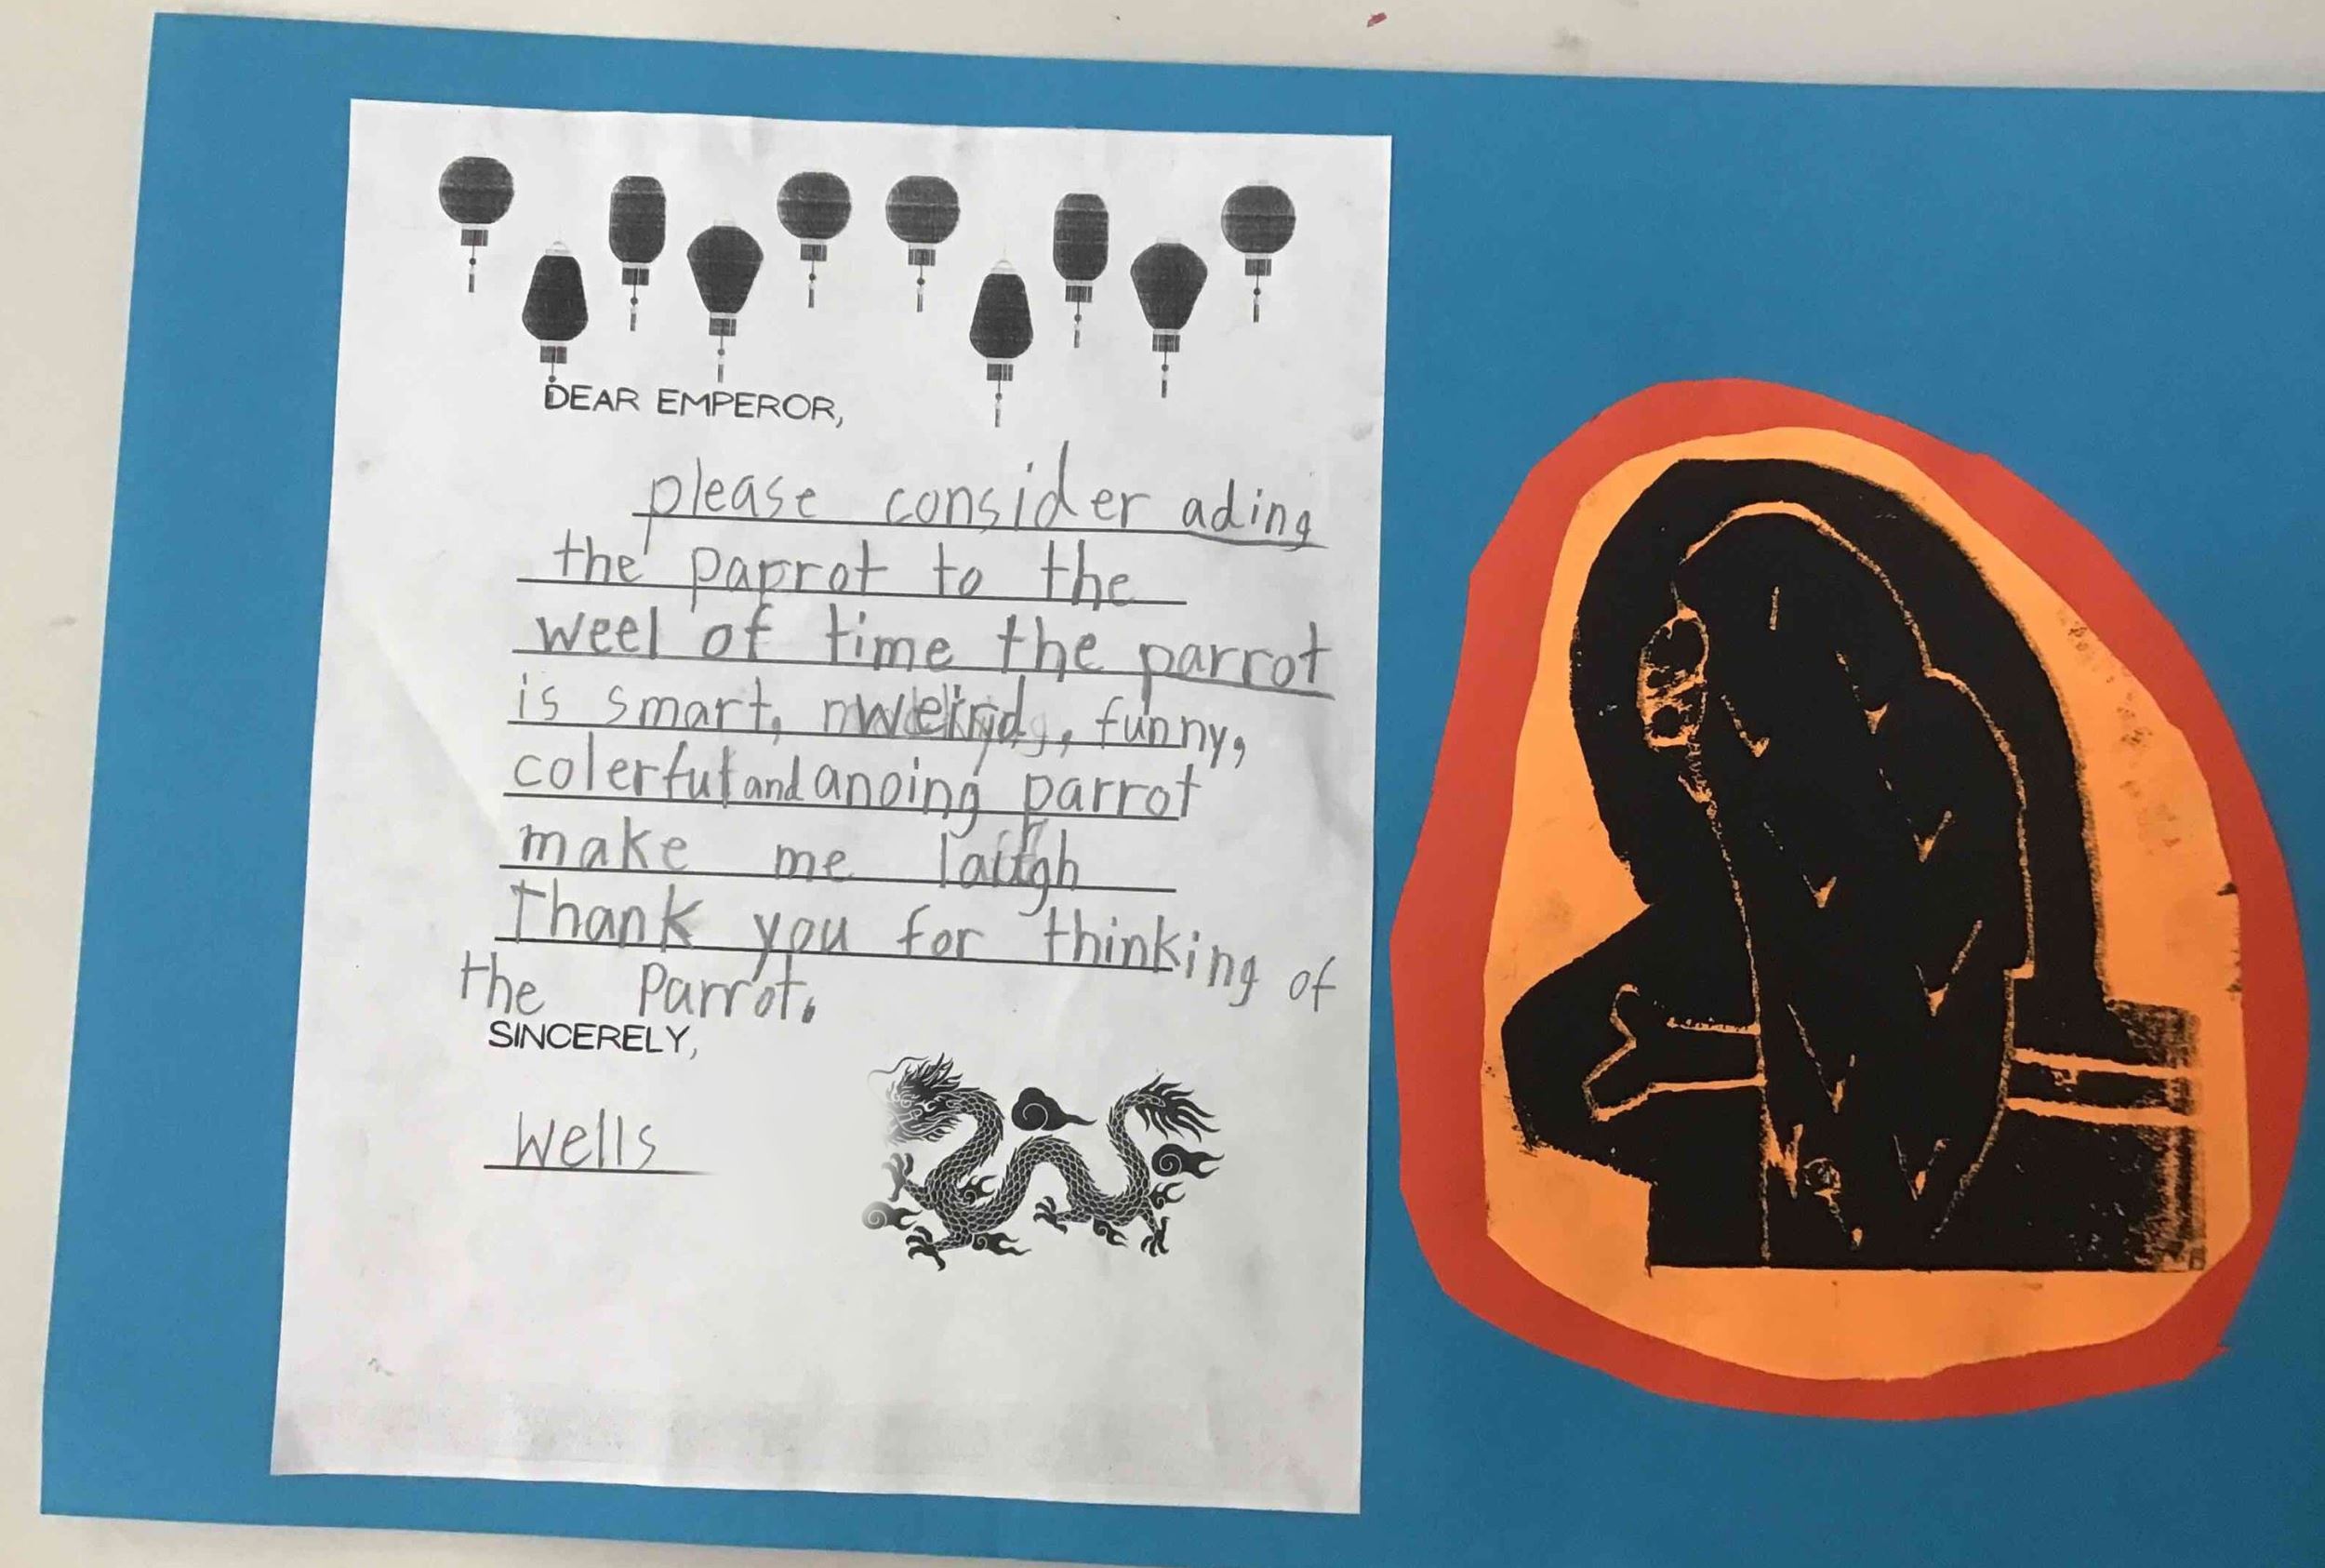 DEAR EMPEROR,
please consider ading
the parrot to the
weel of time the parrot
is smart, weird, funny,
colerful and anoing parrot
make me laugh
Thank you for thinking of
the Parrot.
SINCERELY,
Wells